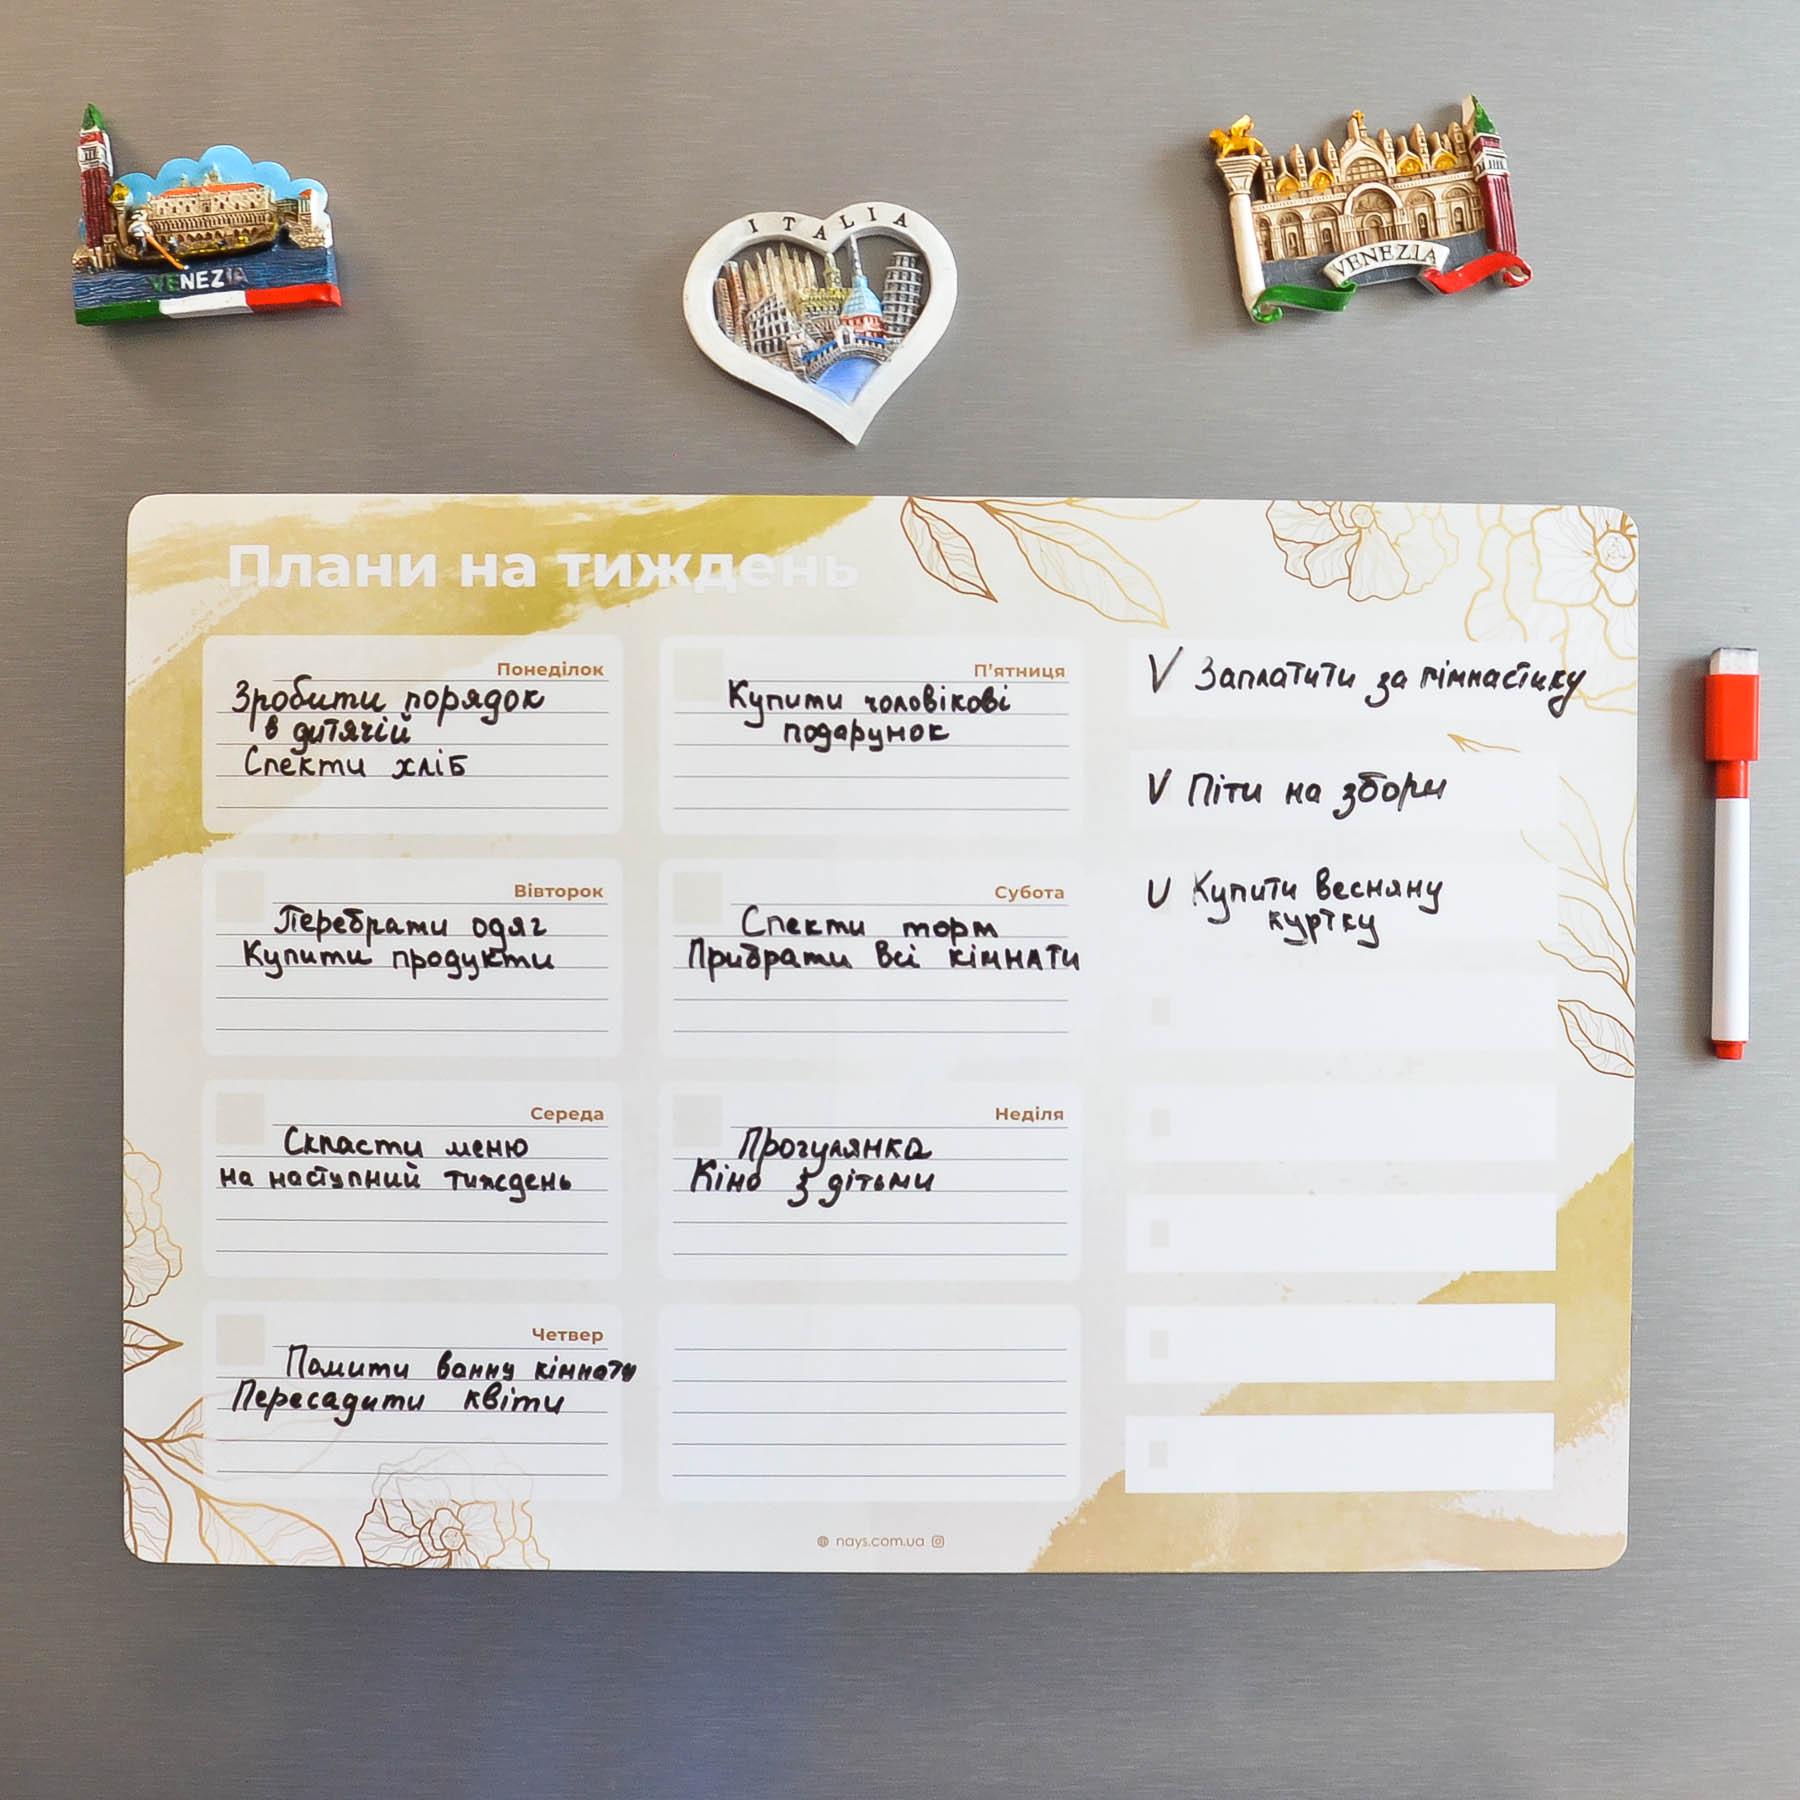 VENEZIA
ITALIA
VENEZIA
Плани на тиждень
Понеділок
Зробити порядок
в дитячій
Спекти хліб
Вівторок
Перебрати одяг
Купити продукти
Середа
Скласти меню
на наступний тиждень
Четвер
Помити ванну кімнату
Пересадити квіти
П'ятниця
Купити чоловікові
подарунок
Субота
Спекти торт
Прибрати всі кімнати
Неділя
Прогулянка
Кіно з дітьми
V Заплатити за гімнастику
V Піти на збори
V Купити весняну
куртку
nays.com.ua